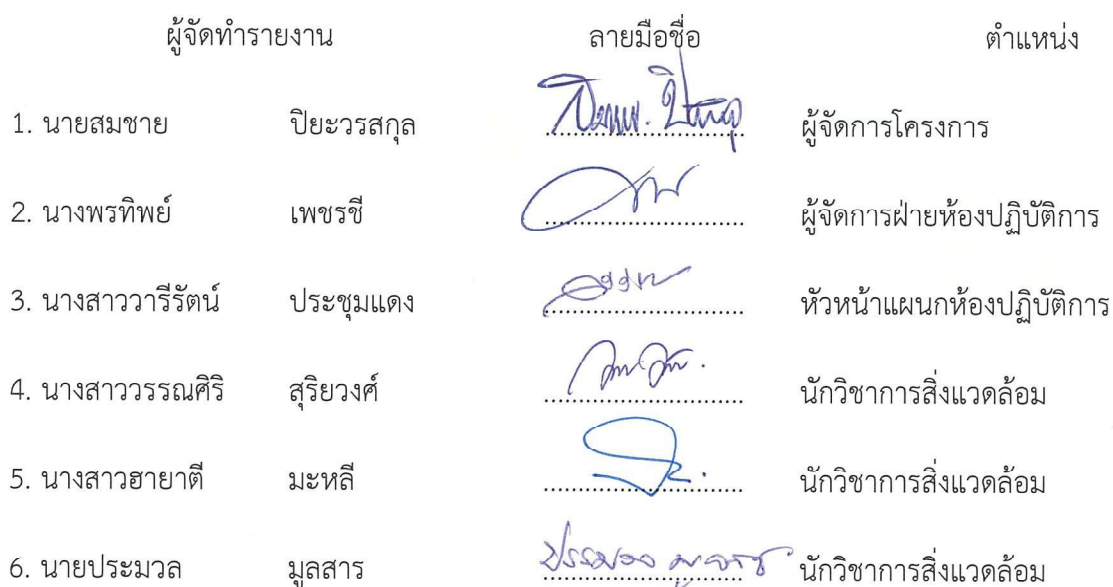 ผู้จัดทำรายงาน ลายมือชื่อ ตำแหน่ง
1. นายสมชาย ปิยะวรสกุล ผู้จัดการโครงการ
2. นางพรทิพย์ เพชรชี ผู้จัดการฝ่ายห้องปฏิบัติการ
3. นางสาววารีรัตน์ ประชุมแดง หัวหน้าแผนกห้องปฏิบัติการ
4. นางสาววรรณศิริ สุริยวงศ์ นักวิชาการสิ่งแวดล้อม
5. นางสาวฮายาตี มะหลี นักวิชาการสิ่งแวดล้อม
6. นายประมวล มูลสาร นักวิชาการสิ่งแวดล้อม